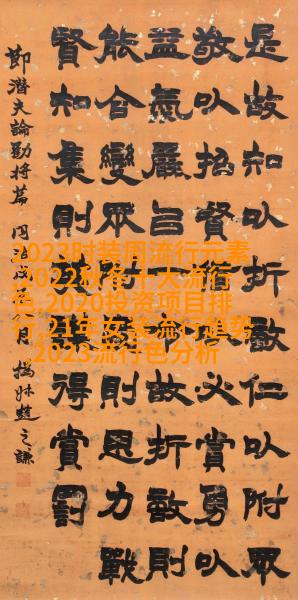 是故知㠯折敵仁㠯附眾
敬㠯招賢信㠯必賞勇㠯
益氣嚴㠯一令故折敵則
能合變眾附則思力戰
賢知集則英謀得賞罰
節潛夫論勸將篇 同治 月 撝叔趙之謙
2023时装周流行元素
,2022秋冬十大流行
色,2020投资项目排
行,21年女装流行趋势
,2023流行色分析